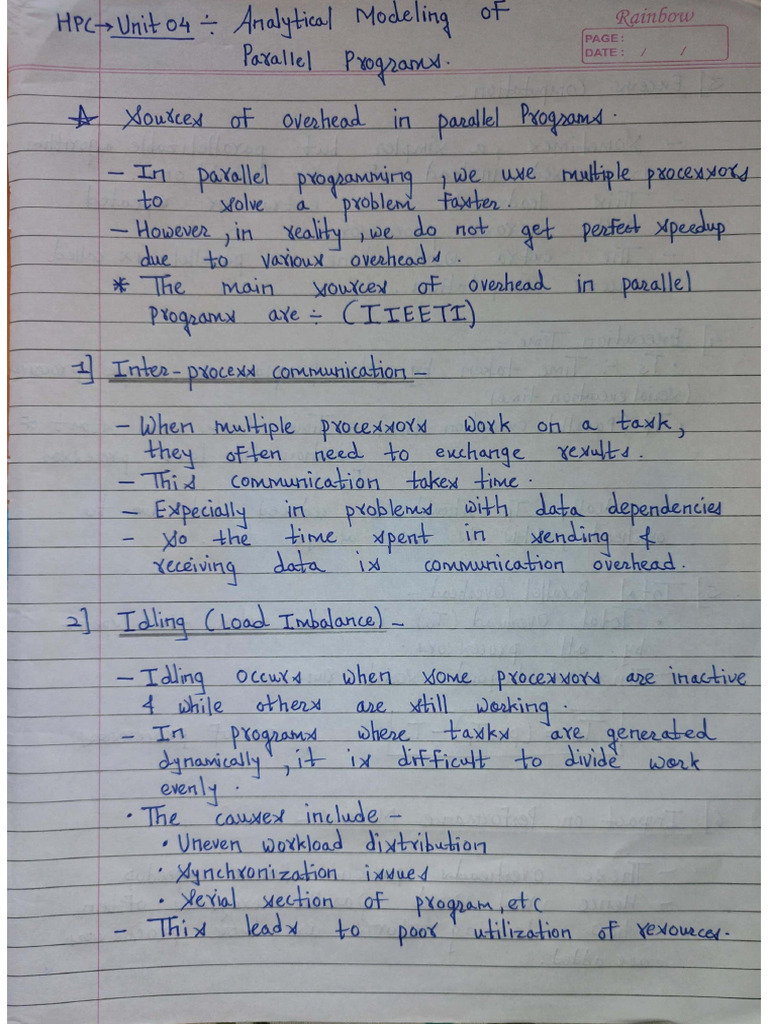 HPC → Unit 04 ÷ Analytical Modeling of
Parallel Programs.
Rainbow
PAGE:
DATE: / /
☆ Sources of overhead in parallel Programs.
- In parallel programming, we use multiple processors
to solve a problem faster.
- However, in reality, we do not get perfect speedup
due to various overheads.
* The main sources of overhead in parallel
programs are ÷ (IIEETI)
1] Inter-process communication -
- When multiple processors work on a task,
they often need to exchange results.
- This communication takes time.
- Especially in problems with data dependencies
- so the time spent in sending &
receiving data is communication overhead.
2] Idling (Load Imbalance) -
- Idling occurs when some processors are inactive
& while others are still working.
- In programs where tasks are generated
dynamically, it is difficult to divide work
evenly.
• The causes include -
• Uneven workload distribution
• Synchronization issues
• Serial section of program, etc
- This leads to poor utilization of resources.